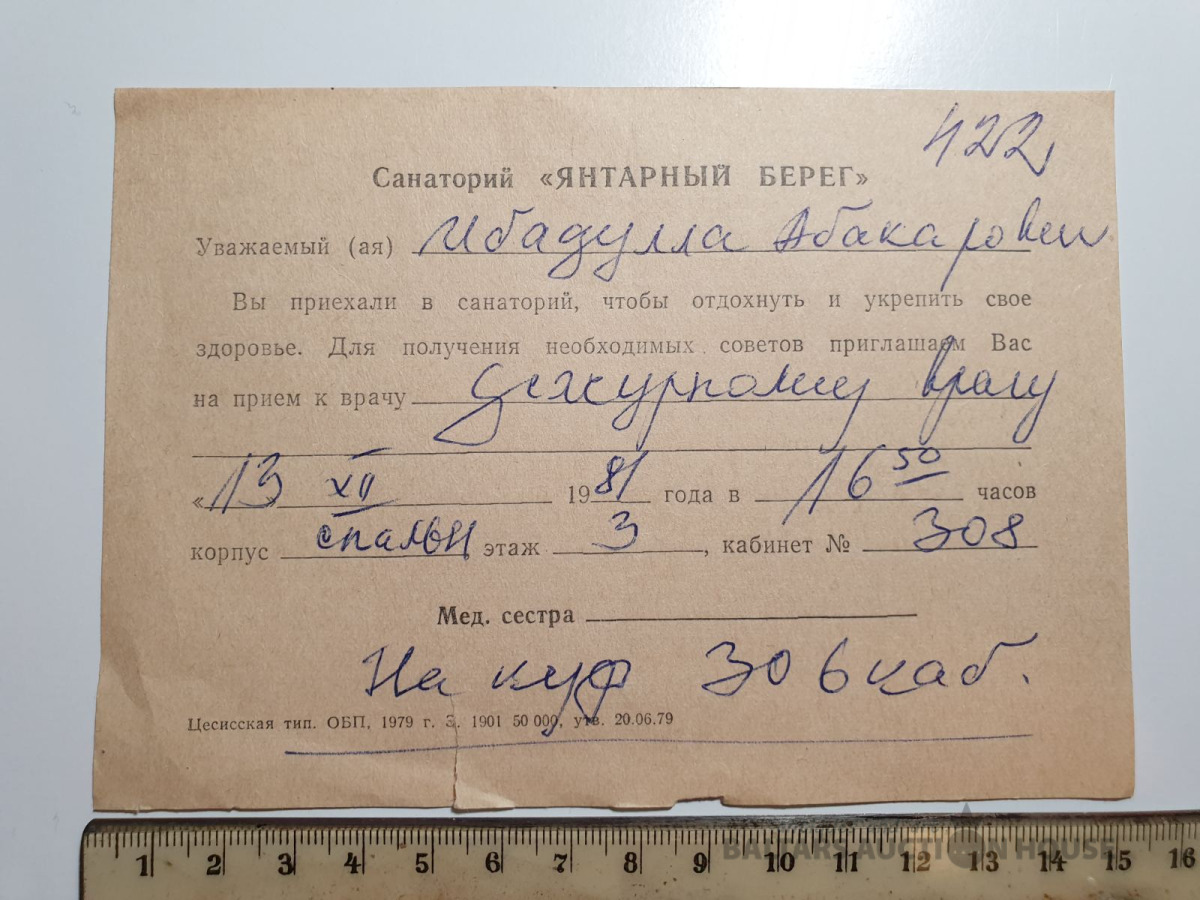 422
Санаторий «ЯНТАРНЫЙ БЕРЕГ»
Уважаемый (ая) Ибадулла Абакарович
Вы приехали в санаторий, чтобы отдохнуть и укрепить свое
здоровье. Для получения необходимых советов приглашаем Вас
на прием к врачу дежурному врачу
«13 XII 1981 года в 16 50 часов
корпус спальн этаж 3, кабинет № 308
Мед. сестра
На куф 306 каб.
Цесисская тип. ОБП, 1979 г. З. 1901 50 000, утв. 20.06.79
1 2 3 4 5 6 7 8 9 10 11 12 13 14 15 16
BALTARS AUCTION HOUSE